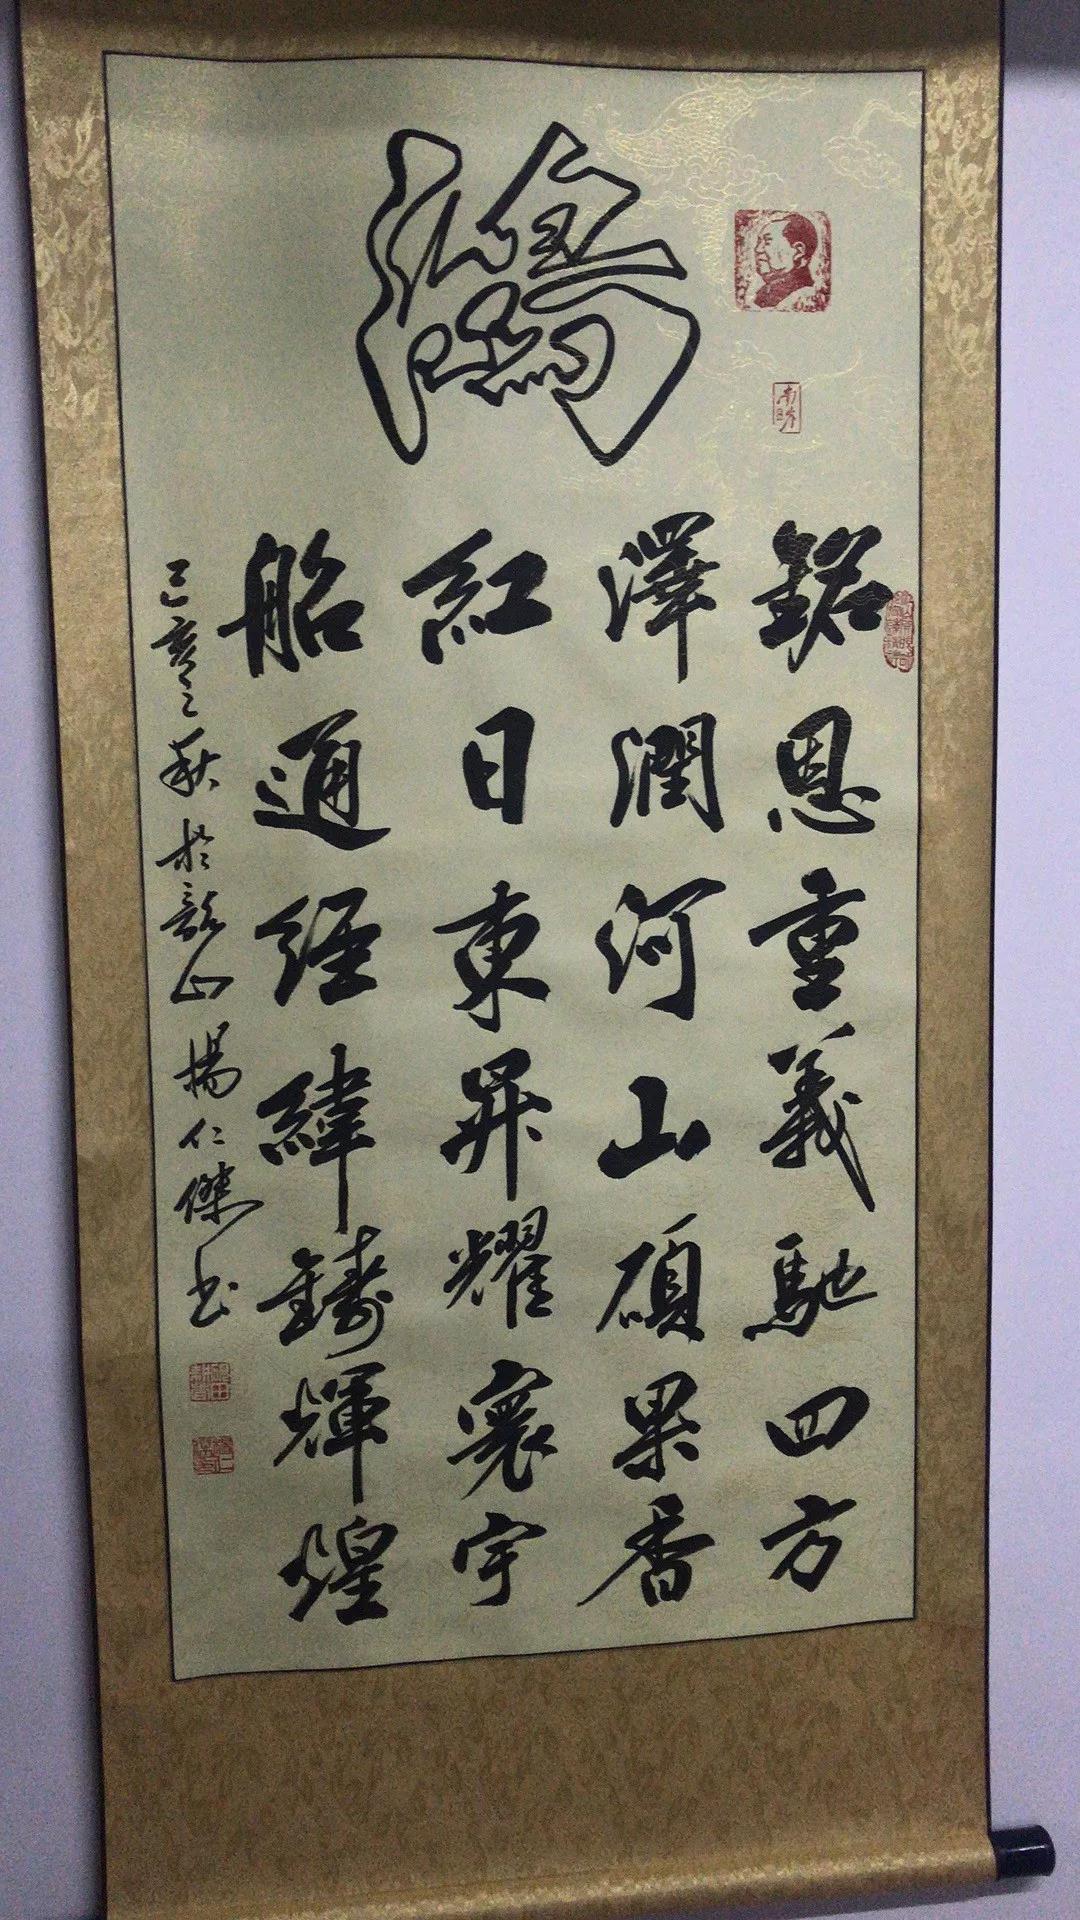 銘恩重義馳四方
澤潤河山碩果香
紅日東昇耀寰宇
船通經緯鑄輝煌
己亥之秋於韶山楊仁傑书